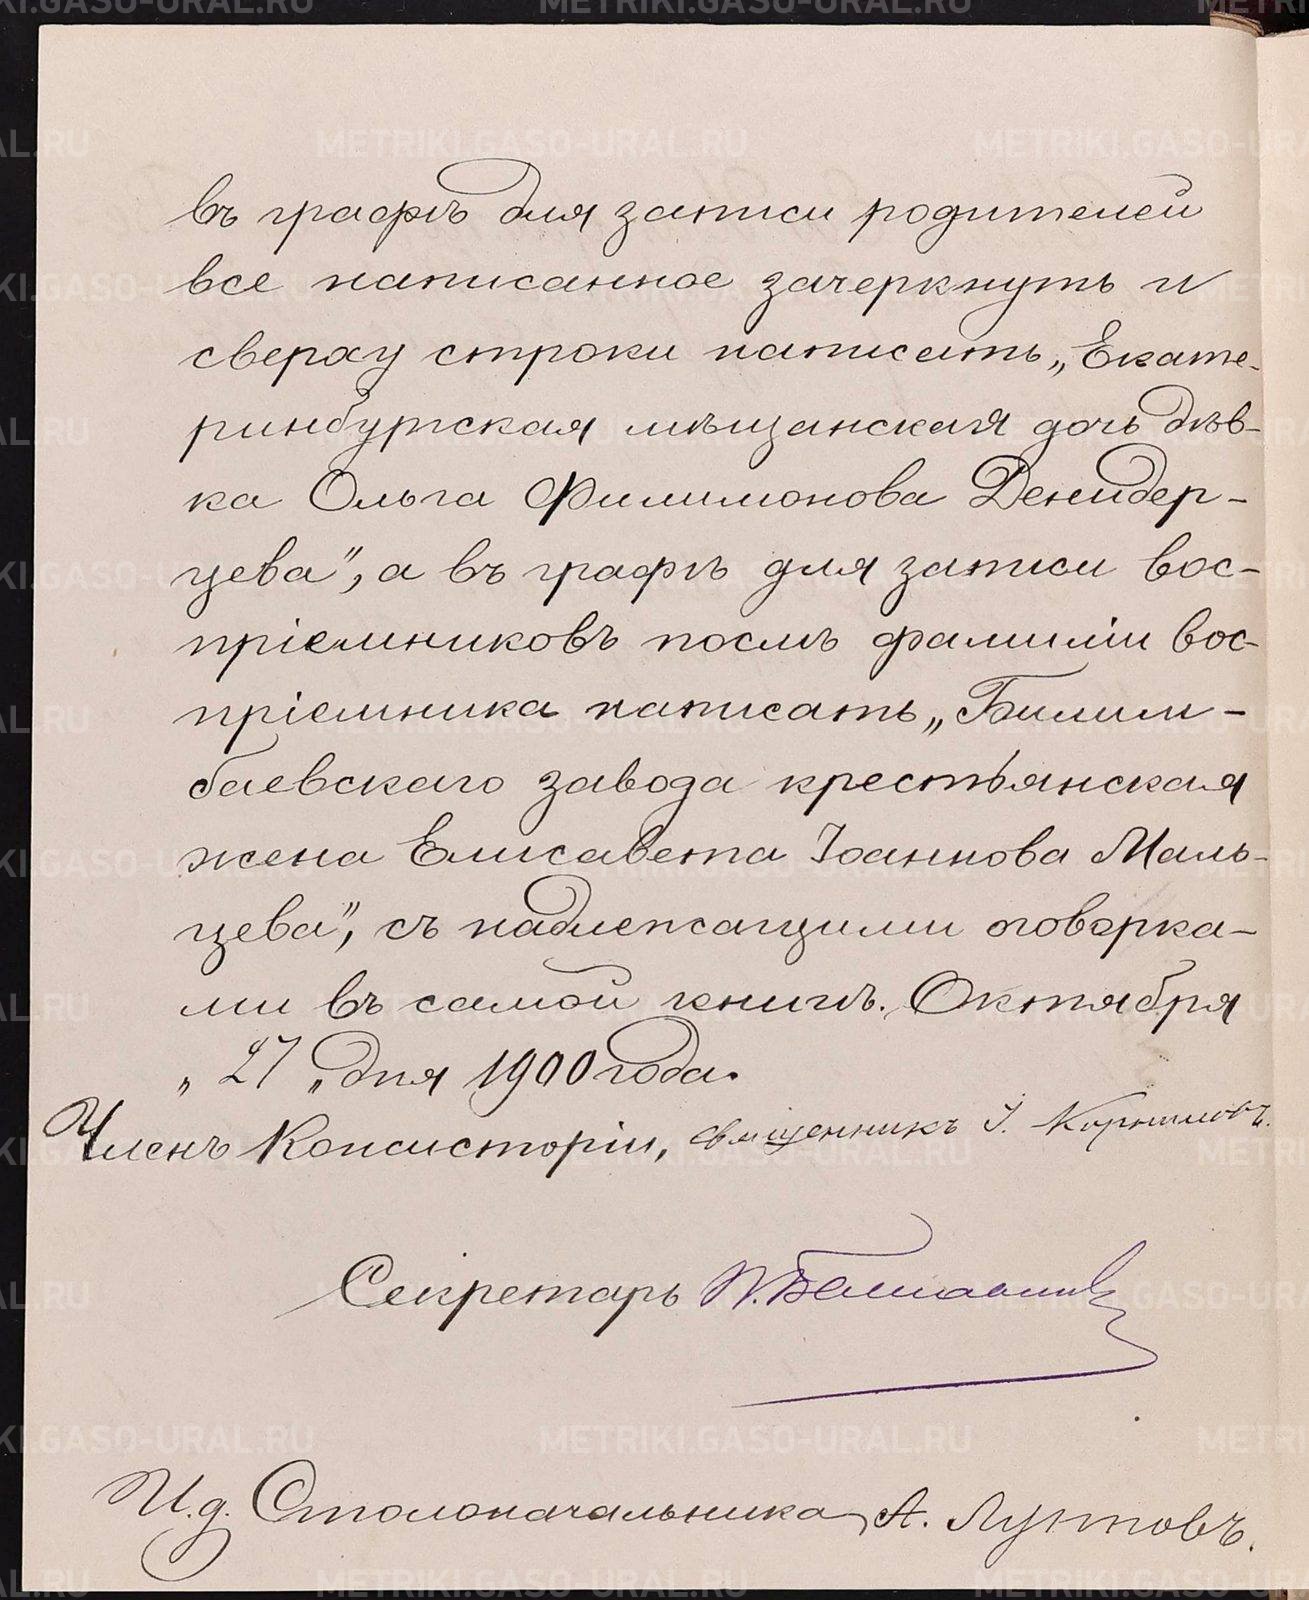 въ графѣ для записи родителей
все написанное зачеркнуть и
сверху строки написать „Екате-
ринбургская мѣщанская дочь дѣв-
ка Ольга Филимонова Денидер-
цева", а въ графѣ для записи вос-
пріемниковъ послѣ фамиліи вос-
пріемника написать „Билим-
баевскаго завода крестьянская
жена Елисавета Іоаннова Маль-
цева", съ надлежащими оговорка-
ми въ самой книгѣ. Октября
„27„ дня 1900 года.
Членъ Консисторіи, священникъ І. Корниловъ.
Секретарь П.
И.д. Столоначальника, А. Лунтовъ.
METRIKI.GASO-URAL.RU